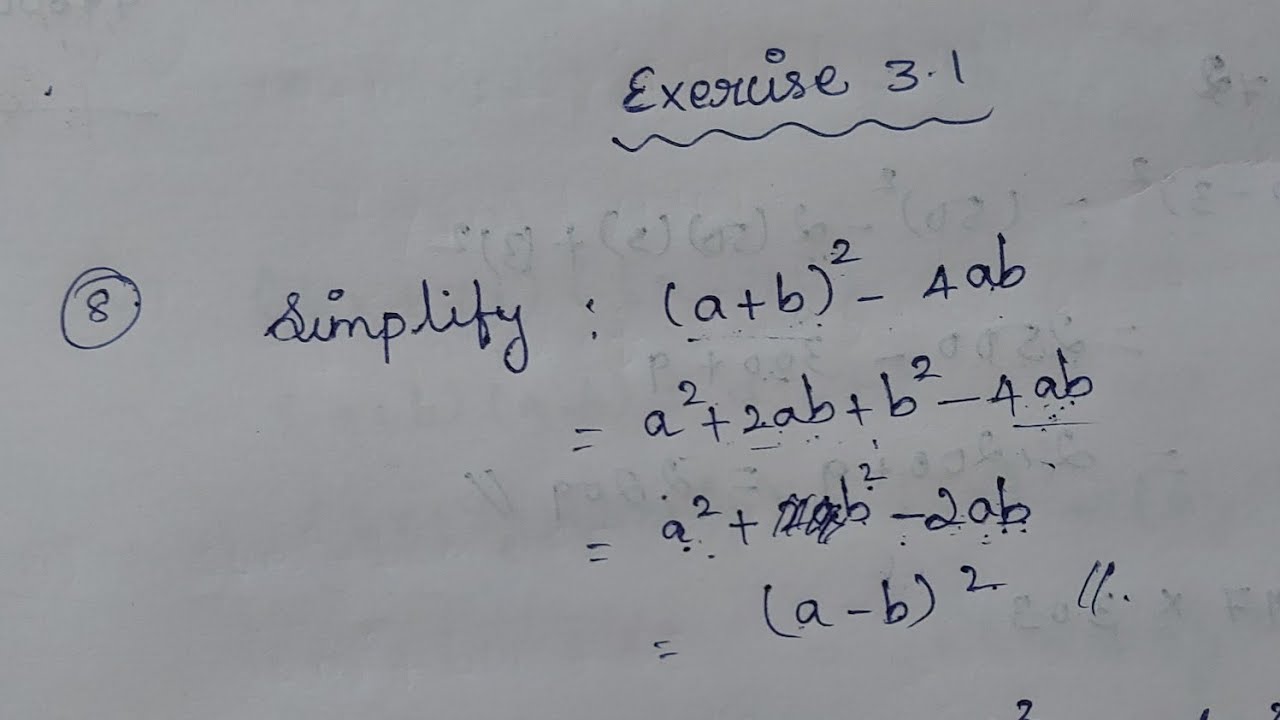 Exercise 3.1
8 Simplify : (a+b)² - 4ab
= a² + 2ab + b² - 4ab
= a² + b² - 2ab
= (a-b)² //.